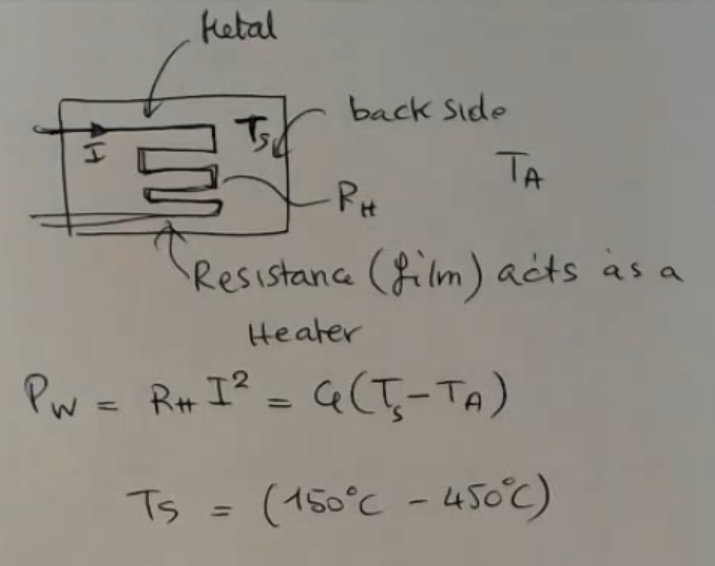 Metal
back side
I
Ts
TA
RH
Resistance (film) acts as a
Heater
PW = RH I² = G(Ts-TA)
Ts = (150°C - 450°C)